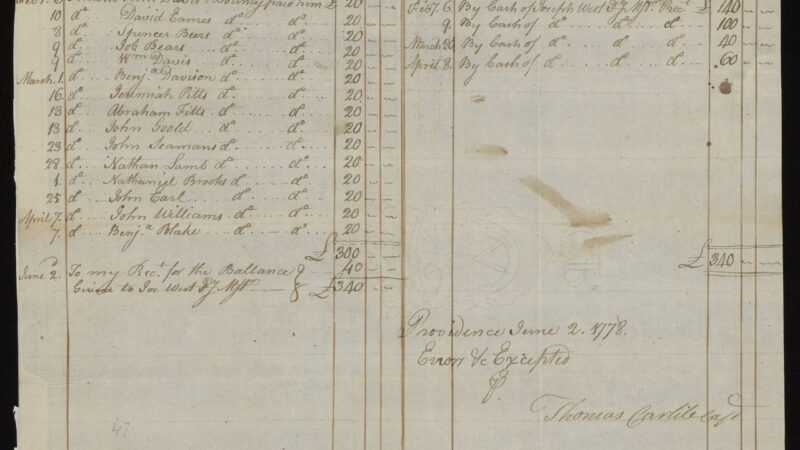 John Davis Bounty paid him £ 20
10 dº David Eames dº dº 20
8 dº Spencer Beers dº dº 20
9 dº Job Bears dº dº 20
9 dº Wm Davis dº dº 20
March. 1 dº Benjª Davison dº dº 20
16 dº Jeremiah Pitts dº dº 20
13 dº Abraham Fitts dº dº 20
13 dº John Goold dº dº 20
23 dº John Seamans dº dº 20
28 dº Nathan Lamb dº dº 20
1 dº Nathaniel Brooks dº dº 20
25 dº John Earl dº dº 20
April 7. dº John Williams dº dº 20
7 dº Benjª Blake dº dº 20
£ 300
June 2d. To my Rect. for the Ballance 40
Given to Jos. West £340
Feby. 6. By Cash of Joseph West Rect £ 140
9. By Cash of dº dº dº 100
March 20 By Cash of dº dº dº 40
April 8. By Cash of d d dº 60
£ 340
Providence June 2. 1778.
Errors &c Excepted
P.
Thomas Carlile Capt
47